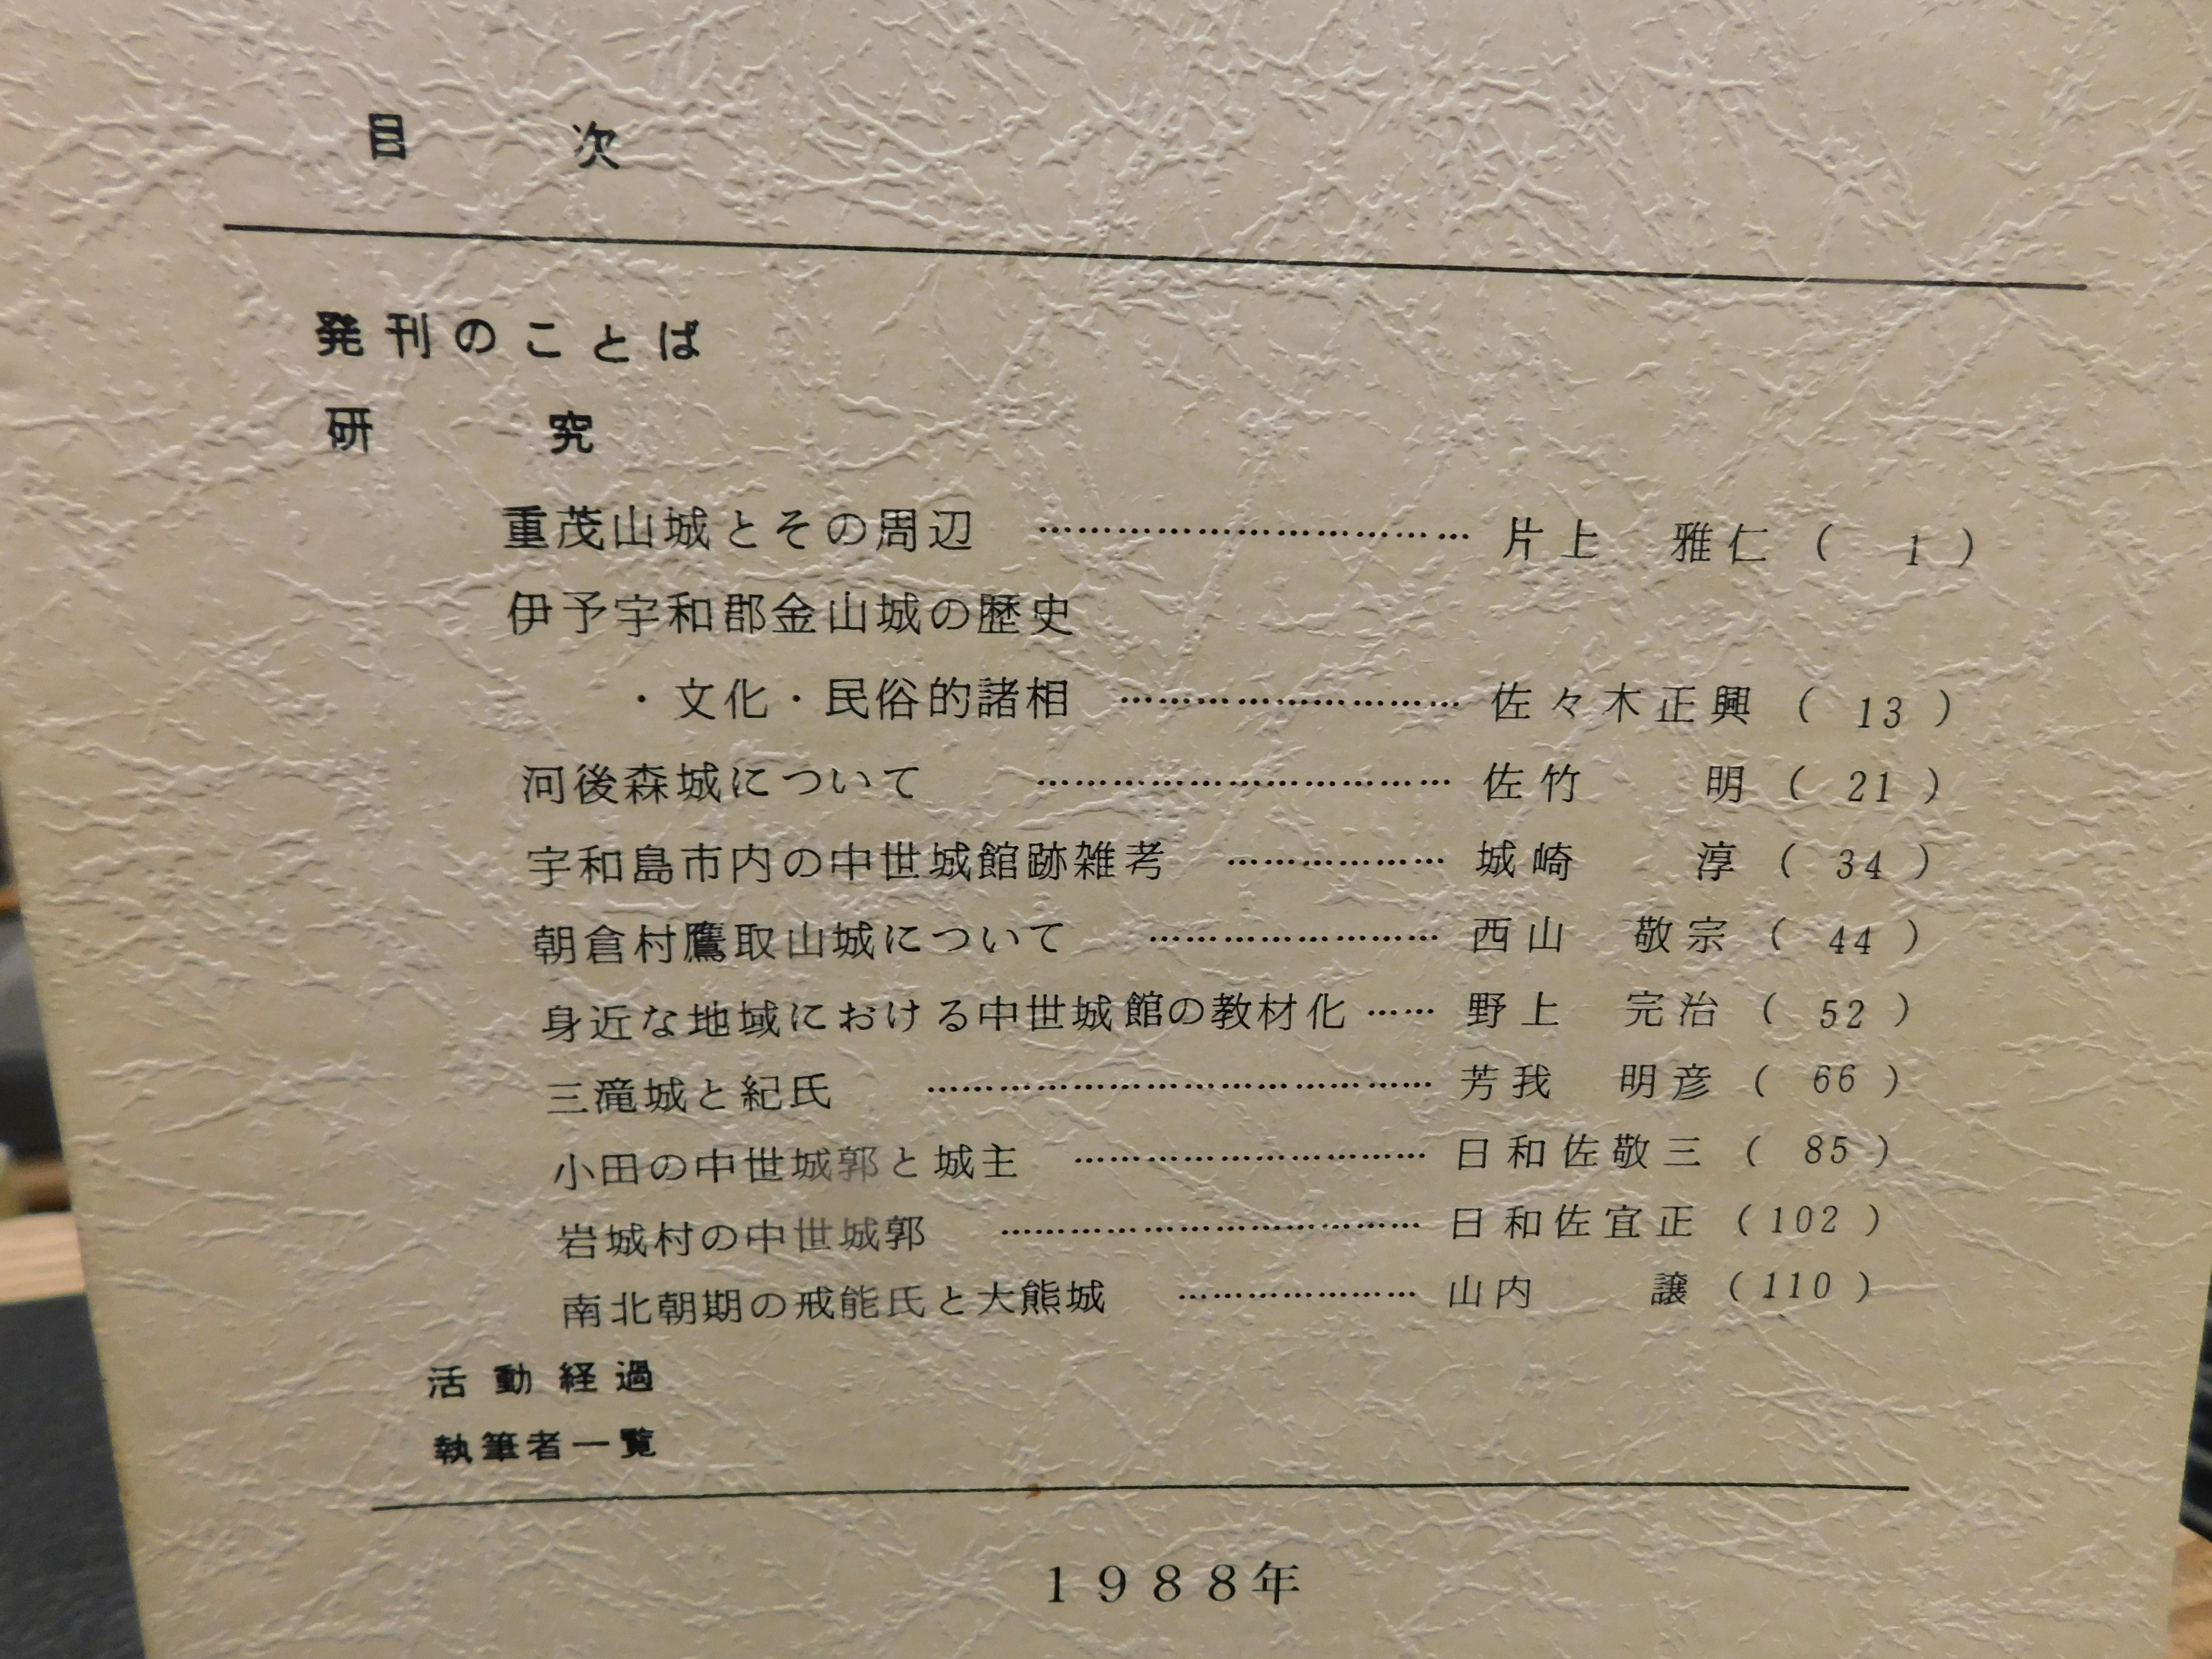 目　次
発刊のことば
研　究
重茂山城とその周辺 ………………………… 片上　雅仁 ( 1 )
伊予宇和郡金山城の歴史
・文化・民俗的諸相 ………………………… 佐々木正興 ( 13 )
河後森城について ………………………… 佐竹　明 ( 21 )
宇和島市内の中世城館跡雑考 ……………… 城崎　淳 ( 34 )
朝倉村鷹取山城について …………………… 西山　敬宗 ( 44 )
身近な地域における中世城館の教材化 …… 野上　完治 ( 52 )
三滝城と紀氏 ………………………………… 芳我　明彦 ( 66 )
小田の中世城郭と城主 ……………………… 日和佐敬三 ( 85 )
岩城村の中世城郭 …………………………… 日和佐宜正 ( 102 )
南北朝期の戒能氏と大熊城 ……………… 山内　譲 ( 110 )
活動経過
執筆者一覧
1988年